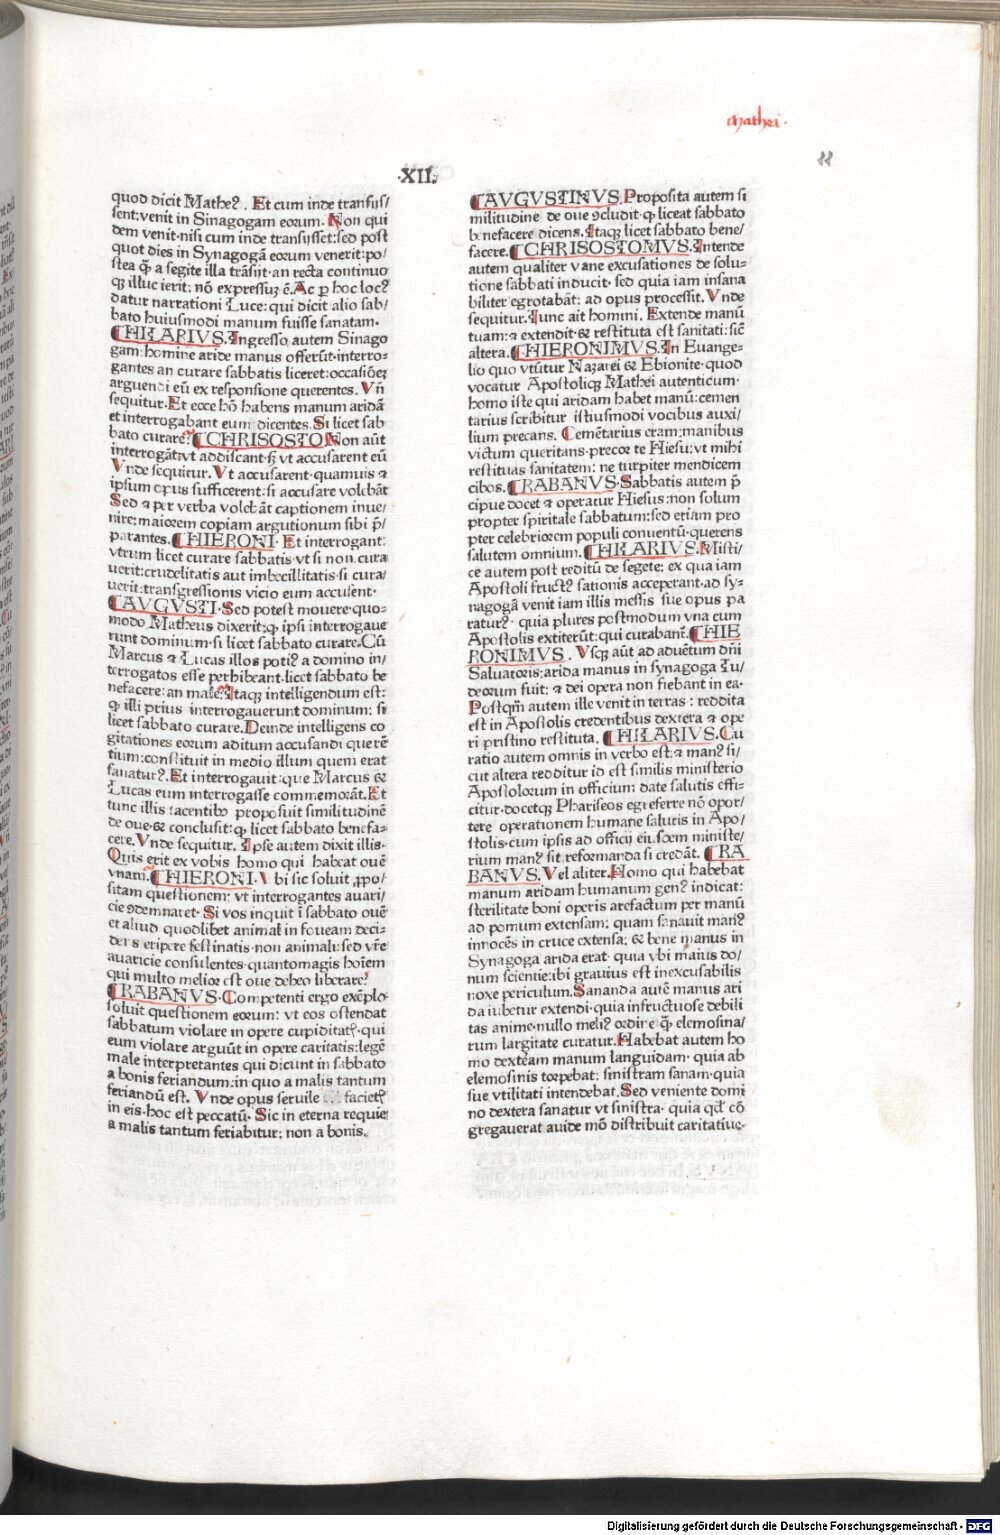 Mathei ·
88
·XII·
quod dicit Mathe⁹. Et cum inde transijs/
sent: venit in Sinagogam eorum. Non qui
dem venit· nisi cum inde transijsset: sed post
quot dies in Synagogā eorum venerit: po/
stea q̄ a segete illa trāsijt· an recta continuo
qꝫ illuc ierit: nō expressuꝫ ē. Ac ꝑ hoc loc⁹
datur narrationi Luce: qui dicit alio sab/
bato huiusmodi manum fuisse sanatam·
¶HILARIVS. Ingresso autem Sinago
gam: homine aride manus offerūt· interro-
gantes an curare sabbatis liceret: occasiōeꝫ
arguendi eū ex responsione querentes. Vñ
sequitur. Et ecce hō habens manum aridā
et interrogabant eum dicentes. Si licet sab
bato curare? ¶CHRISOSTO Non aūt
interrogāt· vt addiscant· sꝫ vt accusarent eū
Vnde sequitur. Vt accusarent· quamuis ⁊
ipsum opus sufficerent: si accusare volebāt
Sed ⁊ per verba volebāt captionem inue/
nire: maiorem copiam argutionum sibi p̄/
parantes. ¶HIERONI· Et interrogant:
vtrum licet curare sabbatis· vt si non cura
uerit: crudelitatis aut imbecillitatis· si cura/
uerit: transgressionis vicio eum accusent·
¶AVGVSTI· Sed potest mouere· quo-
modo Matheus dixerit: ꝙ ipsi interrogaue
runt dominum· si licet sabbato curare. Cū
Marcus ⁊ Lucas illos poti⁹ a domino in/
terrogatos esse perhibeant· licet sabbato be
nefacere: an male? Itaqꝫ intelligendum est:
ꝙ illi prius interrogauerunt dominum: si
licet sabbato curare. Deinde intelligens co
gitationes eorum aditum accusandi querē
tium: constituit in medio illum quem erat
sanatur⁹. Et interrogauit: que Marcus &
Lucas eum interrogasse commemorāt. Et
tunc illis tacentibꝰ proposuit similitudinē
de oue· & conclusit: ꝙ licet sabbato benefa-
cere. Vnde sequitur. Ipse autem dixit illis·
Quis erit ex vobis homo qui habeat ouē
vnam. ¶HIERONI· Vbi sic soluit ꝓpo/
sitam questionem: vt interrogantes auari/
cie ꝯdemnaret· Si vos inquit ī sabbato ouē
et aliud quodlibet animal in foueam deci-
dens eripere festinatis· non animali: sed vr̄e
auaricie consulentes· quantomagis hoīem
qui multo melior est oue debeo liberare?
¶RABANVS· Competenti ergo exēplo
soluit questionem eorum: vt eos ostendat
sabbatum violare in opere cupiditat̄· qui
eum violare arguūt in opere caritatis: legē
male interpretantes qui dicunt in sabbato
a bonis feriandum: in quo a malis tantum
feriandū est. Vnde opus seruile facietꝭ
in eis· hoc est peccatū· Sic in eterna requie
a malis tantum feriabitur: non a bonis.
¶AVGVSTINVS. Proposita autem si
militudine de oue ꝯcludit· ꝙ liceat sabbato
benefacere dicens. Itaqꝫ licet sabbato bene/
facere. ¶CHRISOSTOMVS. Intende
autem qualiter vane excusationes de solu-
tione sabbati inducit· sed quia iam insana
biliter egrotabāt: ad opus processit. Vnde
sequitur. Tunc ait homini. Extende manū
tuam: ⁊ extendit· & restituta est sanitati: sicē
altera. ¶HIERONIMVS. In Euange-
lio quo vtūtur Nazarei & Ebionite· quod
vocatur Apostoliqꝫ Mathei autenticum·
homo iste qui aridam habet manū: cemen
tarius scribitur istiusmodi vocibus auxi/
lium precans. Cemētarius eram: manibus
victum queritans· precor te Hiesu: vt mihi
restituas sanitatem: ne turpiter mendicem
cibos. ¶RABANVS· Sabbatis autem p̄
cipue docet ⁊ operatur Hiesus: non solum
propter spiritale sabbatum: sed etiam pro
pter celebriorem populi conuentū· querens
salutem omnium. ¶HILARIVS. Misti/
ce autem post reditū de segete: ex qua iam
Apostoli fruct⁹ sationis acceperant· ad sy-
nagogā venit iam illis messis sue opus pa
ratur⁹· quia plures postmodum vna cum
Apostolis extiterūt: qui curabant̄. ¶HIE
RONIMVS. Vsqꝫ aūt ad aduētum dñi
Saluatoris: arida manus in synagoga Iu/
deorum fuit: ⁊ dei opera non fiebant in ea·
Postqm̄ autem ille venit in terras: reddita
est in Apostolis credentibus dextera ⁊ ope
ri pristino restituta. ¶HILARIVS. Cu
ratio autem omnis in verbo est: ⁊ man⁹ si/
cut altera redditur id est similis ministerio
Apostolorum in officium date salutis effi-
citur· docetqꝫ Phariseos egreferre nō opor/
tere operationem humane salutis in Apo/
stolis· cum ipsis ad officij eiusdem ministe/
rium man⁹ sit reformanda si credāt. ¶RA
BANVS. Vel aliter. Homo qui habebat
manum aridam humanum gen⁹ indicat:
sterilitate boni operis arefactum per manū
ad pomum extensam: quam sanauit man⁹
innocēs in cruce extensa: & bene manus in
Synagoga arida erat· quia vbi maius do/
num scientie: ibi grauius est inexcusabilis
noxe periculum. Sananda autē manus ari
da iubetur extendi· quia infructuose debili
tas anime· nullo meli⁹ ordine q̄ elemosina/
rum largitate curatur. Habebat autem ho
mo dexteram manum languidam· quia ab
elemosinis torpebat: sinistram sanam· quia
sue vtilitati intendebat. Sed veniente domi
no dextera sanatur vt sinistra· quia qđ cō
gregauerat auide mō distribuit caritatiue·
Digitalisierung gefördert durch die Deutsche Forschungsgemeinschaft · DFG